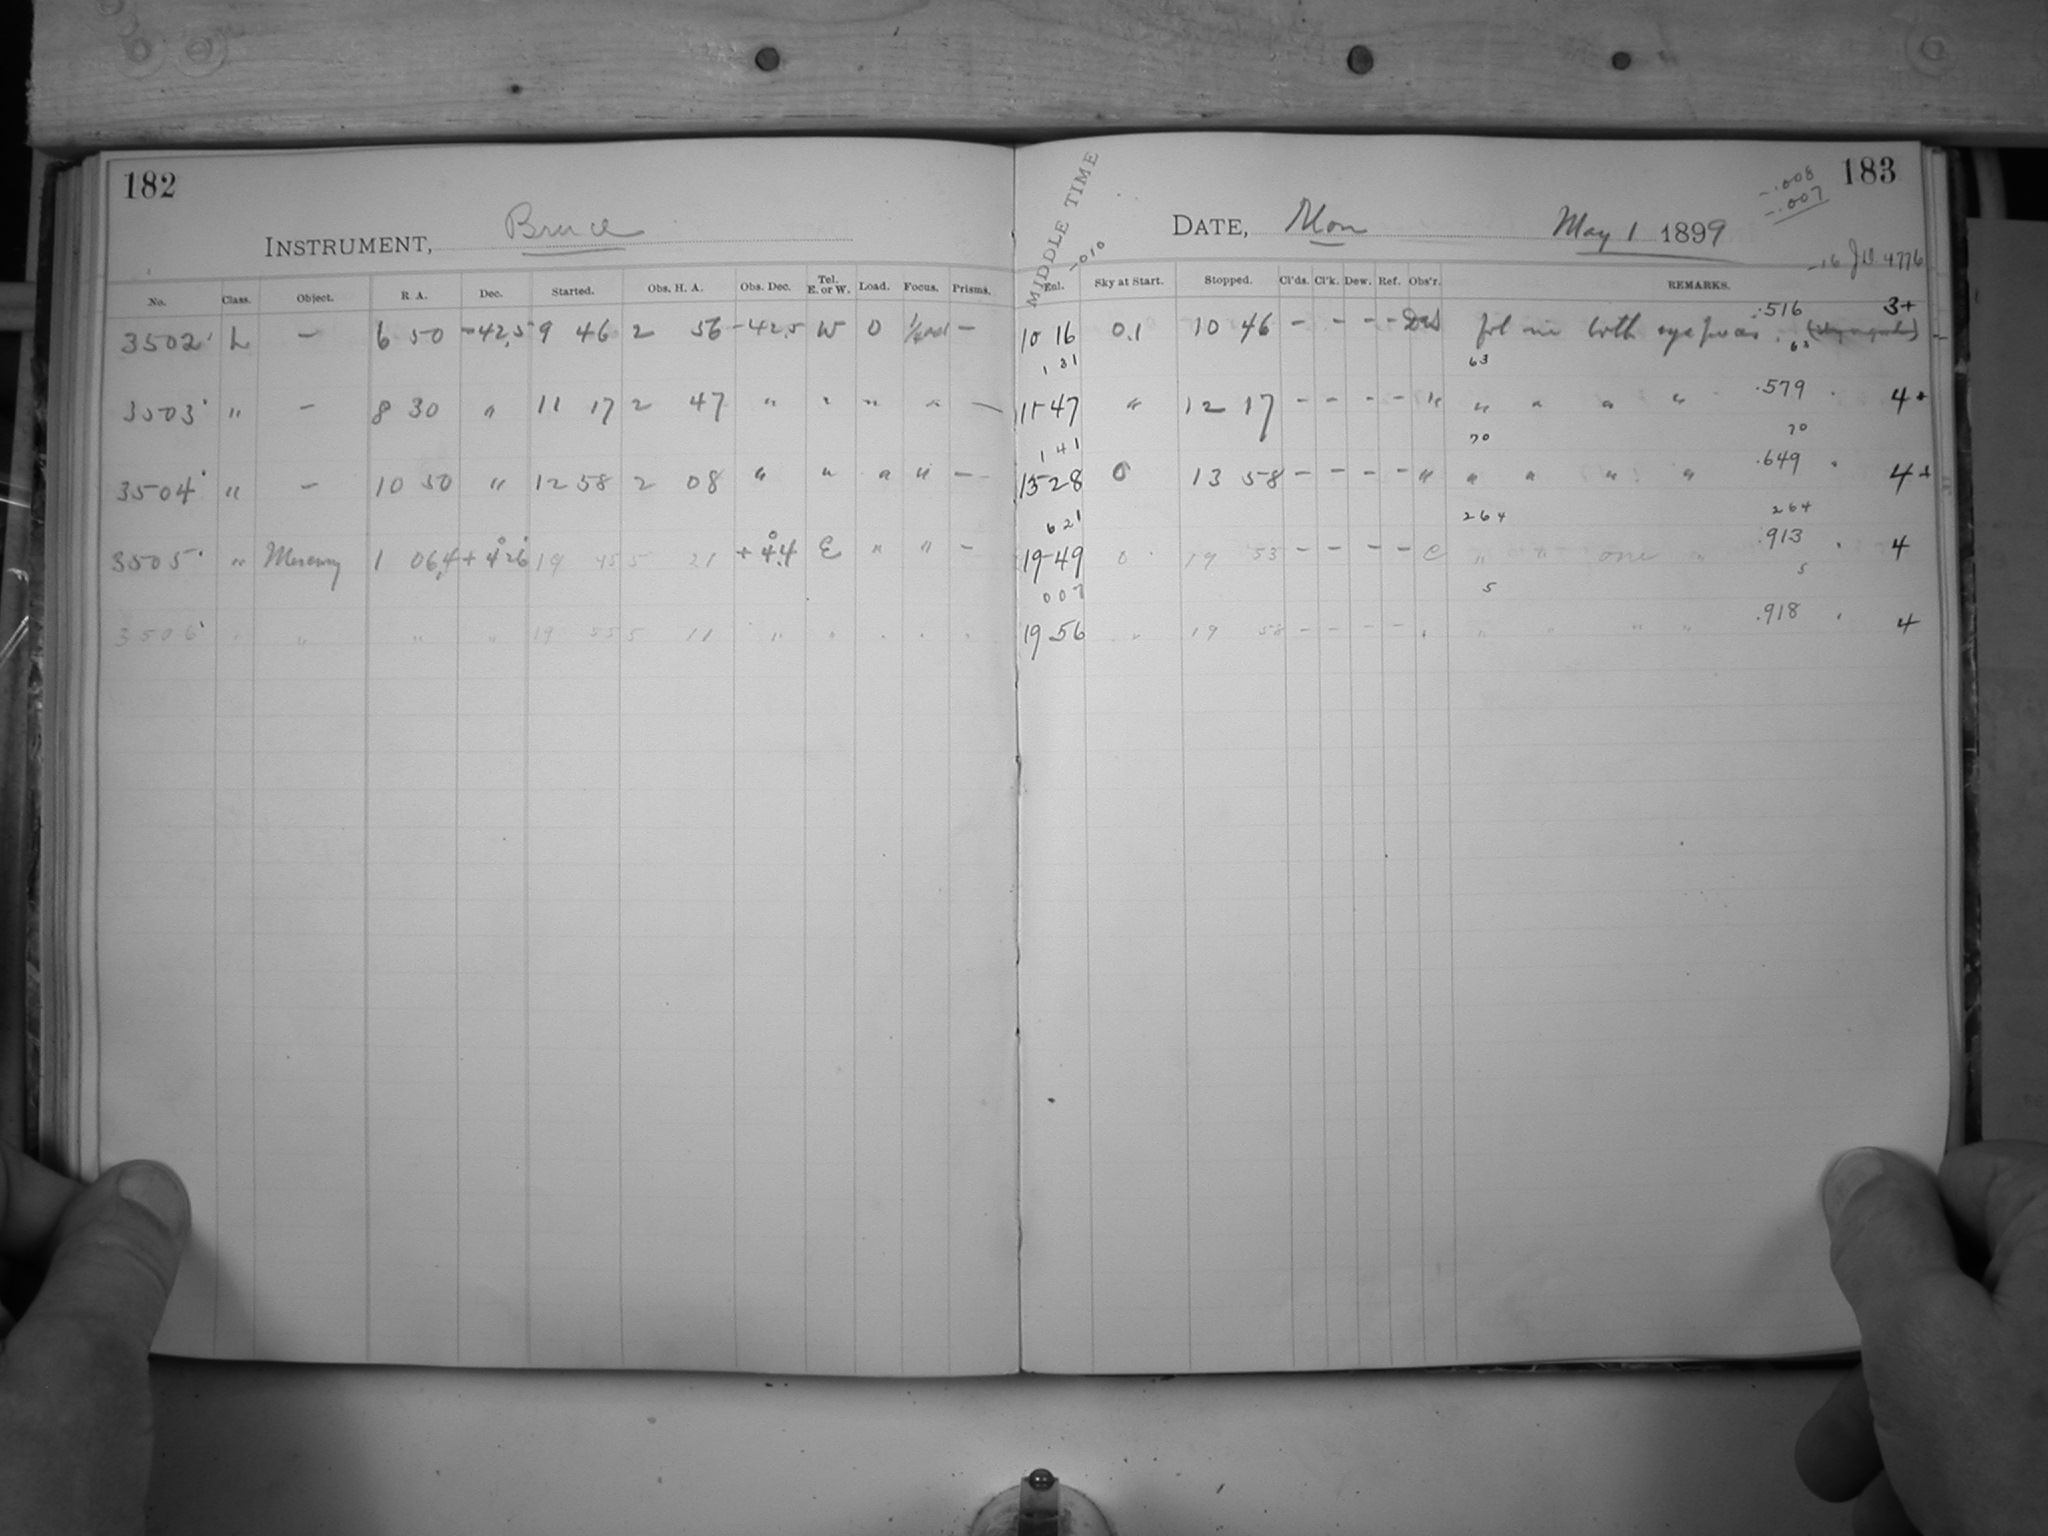 182
INSTRUMENT, Bruce
No. Class. Object. R. A. Dec. Started. Obs. H. A. Obs. Dec. Tel. E. or W. Load. Focus. Prisms.
3502 L — 6 50 -42.5 9 46 2 56 -42.5 W 0 —
3503 " — 8 30 " 11 17 2 47 " " " " —
3504 " — 10 50 " 12 58 2 08 " " " " —
3505 " Mercury 1 06.4 + 4° 26' 19 45 5 21 + 4°.4 E " " —
3506 " " " " 19 55 5 11 " " " " "
183
-.008
-.007
MIDDLE TIME
-010
DATE, Mon May 1 1899
-16 J.D. 4776
Enl. Sky at Start. Stopped. Cl'ds. Cl'k. Dew. Ref. Obs'r. REMARKS.
10 16 0.1 10 46 - - - - fol in both eyepieces. .516 3+
1 31 63 63
11 47 " 12 17 - - - - " " " " " .579 4+
1 41 70 70
13 28 0 13 58 - - - - " " " " " .649 4+
6 21 264 264
19 49 0 19 53 - - - - C " " one " .913 4
007 5 5
19 56 " 19 58 - - - - " " " " " .918 4